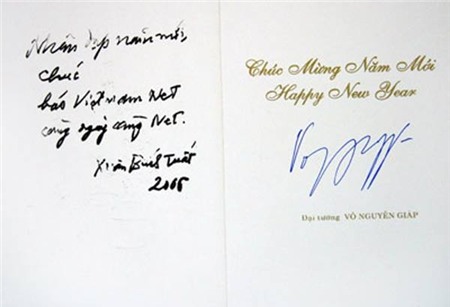 Nhân dịp năm mới,
chúc
báo Việtnam Net
càng ngày càng Net.
Xuân Bính Tuất
2006
Chúc Mừng Năm Mới
Happy New Year
Đại tướng VÕ NGUYÊN GIÁP